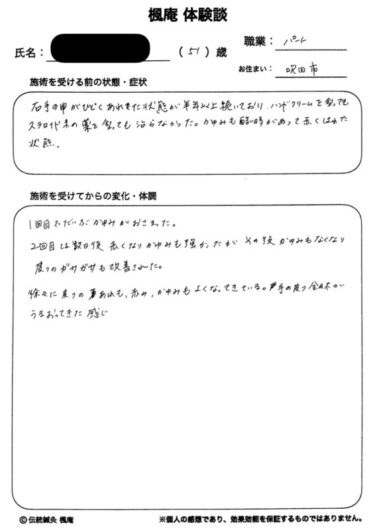 楓庵 体験談
氏名： （51）歳
職業： パート
お住まい： 吹田市
施術を受ける前の状態・症状
右手の甲がひどくあれた状態が半年以上続いており、ハンドクリームを塗っても
ステロイド系の薬を塗っても治らなかった。かゆみも酷い時があって赤くはれた
状態。
施術を受けてからの変化・体調
1回目でだいぶかゆみがおさまった。
2回目は数日後 赤くなりかゆみも強かったが その後かゆみもなくなり
皮フのガサガサも改善された。
徐々に皮フの 赤み、かゆみもよくなってきている。 手の皮フ全体が
うるおってきた感じ
© 伝統鍼灸 楓庵
※個人の感想であり、効果効能を保証するものではありません。